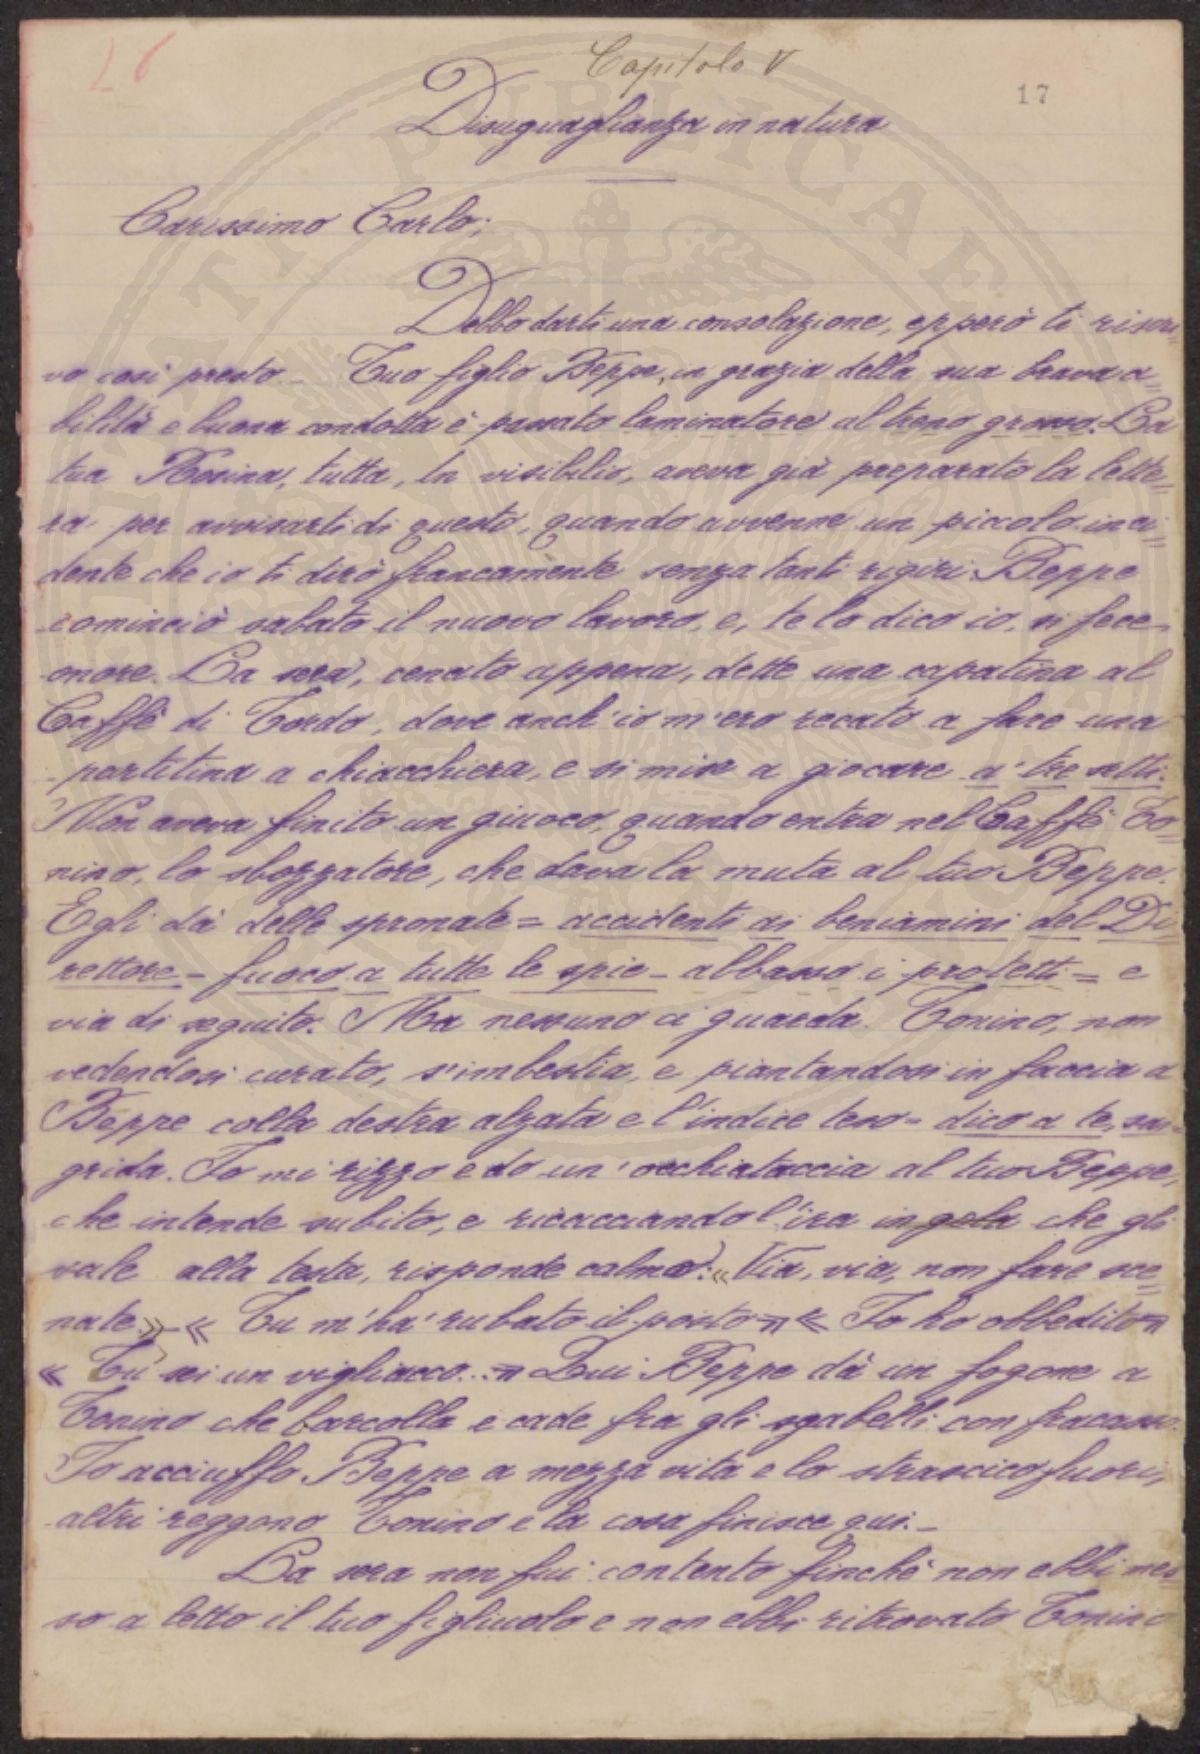 26
Capitolo V
17
Disuguaglianza in natura
Carissimo Carlo;
Debbo darti una consolazione, epperò ti riscri=
vo così presto. – Tuo figlio Beppe, in grazia della sua brava a=
bilità e buona condotta è passato laminatore al treno grosso. La
tua Rosina, tutta, in visibilio, aveva già preparato la lette=
ra per avvisarti di questo, quando avvenne un piccolo inci=
dente che io ti dirò francamente senza tanti rigiri. Beppe
cominciò sabato il nuovo lavoro, e, te lo dico io, si fece
onore. La sera, cenato appena, dette una capatina al
Caffè di Tordo, dove anch'io m'ero recato a fare una
partitina a chiacchiera, e si mise a giocare a' tre setti.
Non aveva finito un giuoco, quando entra nel Caffè To=
nino, lo sbozzatore, che dava la muta al tuo Beppe.
Egli dà delle spronate = accidenti ai beniamini del Di=
rettore – fuoco a tutte le spie – abbasso i protetti = e
via di seguito. Ma nessuno ci guarda. Tonino, non
vedendosi curato, s'imbestia, e piantandosi in faccia a
Beppe colla destra alzata e l'indice teso = dico a te, sa=
grida. Io mi rizzo e do un'occhiataccia al tuo Beppe,
che intende subito, e ricacciando l'ira in gola che gli
sale alla testa, risponde calmo: « Via, via, non fare sce=
nate » – « Tu m'ha' rubato il posto » « Io ho obbedito »
« Tu sei un vigliacco... » Qui Beppe dà un fogone a
Tonino che barcolla e cade fra gli sgabelli con fracasso.
Io acciuffo Beppe a mezza vita e lo strascico fuori,
altri reggono Tonino e la cosa finisce qui. –
La sera non fui contento finchè non ebbi mes=
so a letto il tuo figliuolo e non ebbi ritrovato Tonino